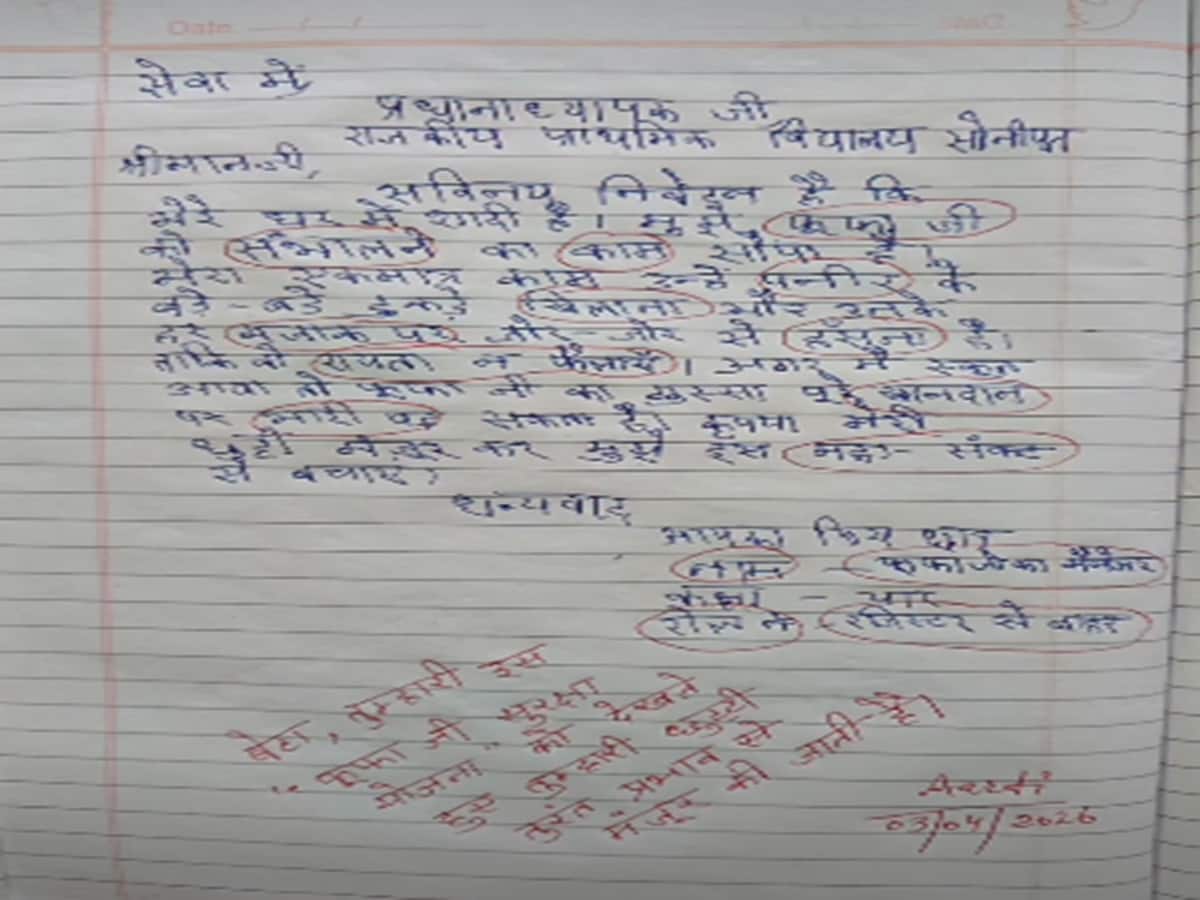 Date ___/___/___
सेवा में
प्रधानाध्यापक जी
राजकीय प्राथमिक विद्यालय सोनीपत
श्रीमानजी,
सविनय निवेदन है कि
मेरे घर में शादी है। मुझे फूफा जी
को संभालने का काम सौंपा है।
मेरा एकमात्र काम उन्हें पनीर के
बड़े-बड़े टुकड़े खिलाना और उनके
हर मजाक पर जोर-जोर से हँसना है।
ताकि वो रायता न फैलाये। अगर मैं स्कूल
आया तो फूफा जी का गुस्सा पूरे खानदान
पर भारी पड़ सकता है। कृपया मेरी
छुट्टी मंजूर कर मुझे इस महा-संकट
से बचाए।
धन्यवाद
आपका प्रिय छात्र
नाम - फूफा जी का मैनेजर
कक्षा - चार
रोल नं. रजिस्टर से बाहर
बेटा, तुम्हारी इस
"फूफा जी सुरक्षा
योजना" को देखते
हुए तुम्हारी छुट्टी
तुरंत प्रभाव से
मंजूर की जाती है।
Aarti
03/04/2026